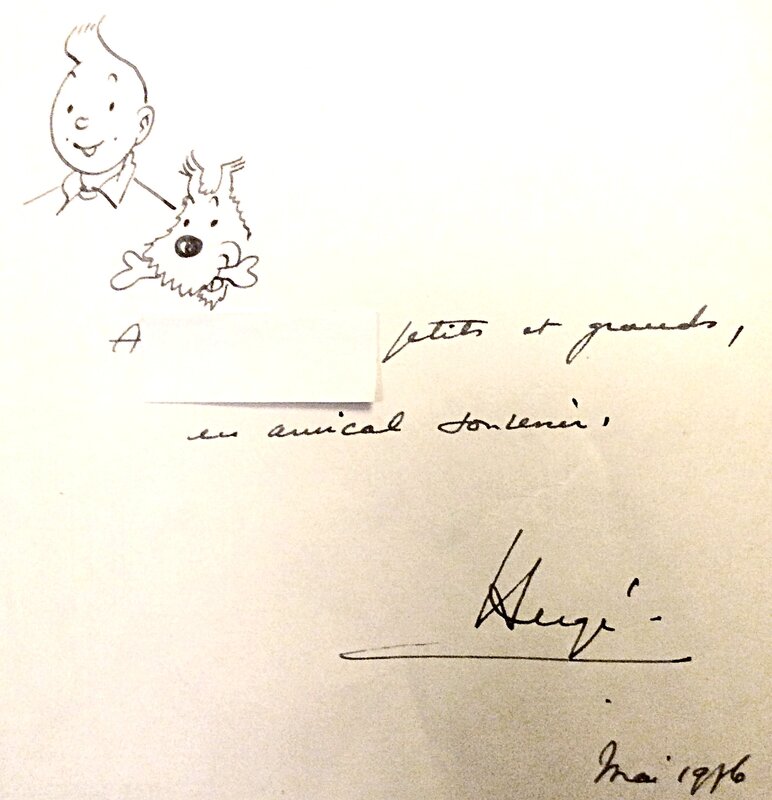 A petits et grands,
en amical souvenir.
Hergé
Mai 1976